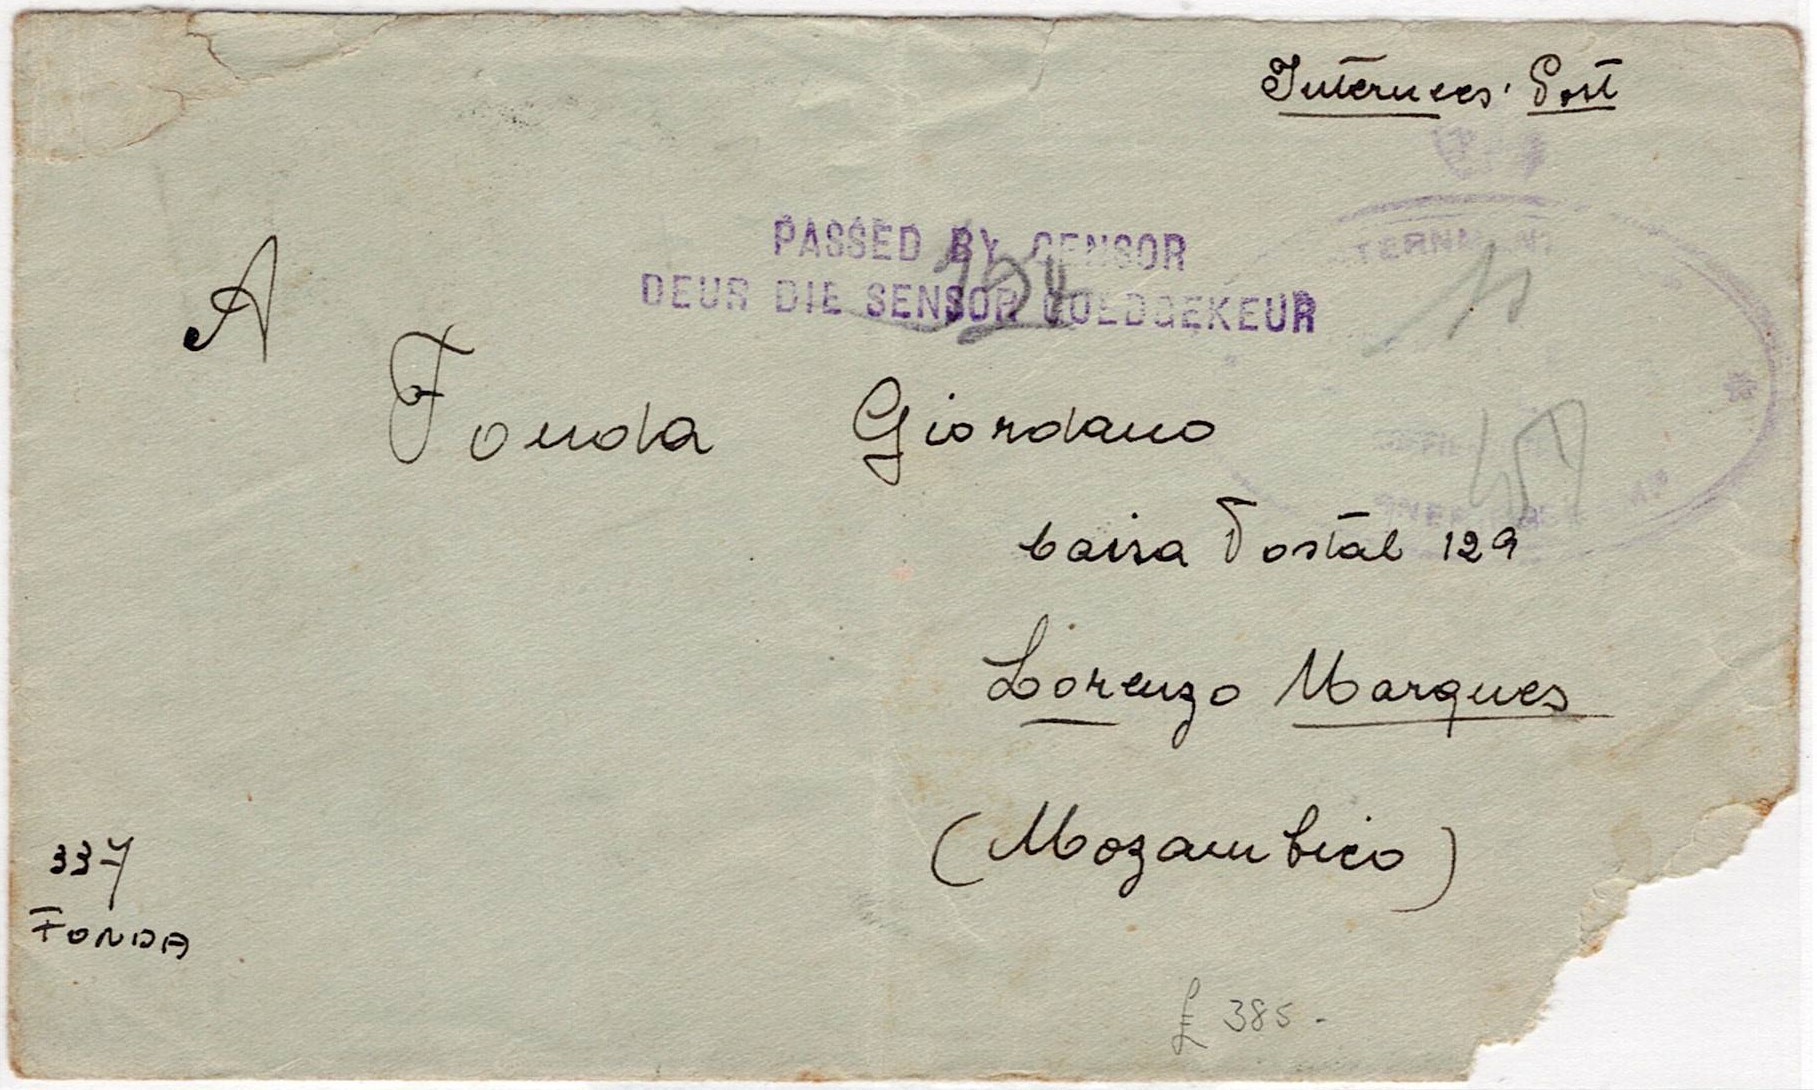 Internees' Post
PASSED BY CENSOR
DEUR DIE SENSOR GOEDGEKEUR
A
Fonda Giordano
Caisa Postal 129
Lorenzo Marques
(Mozambico)
337
FONDA
£ 385.-